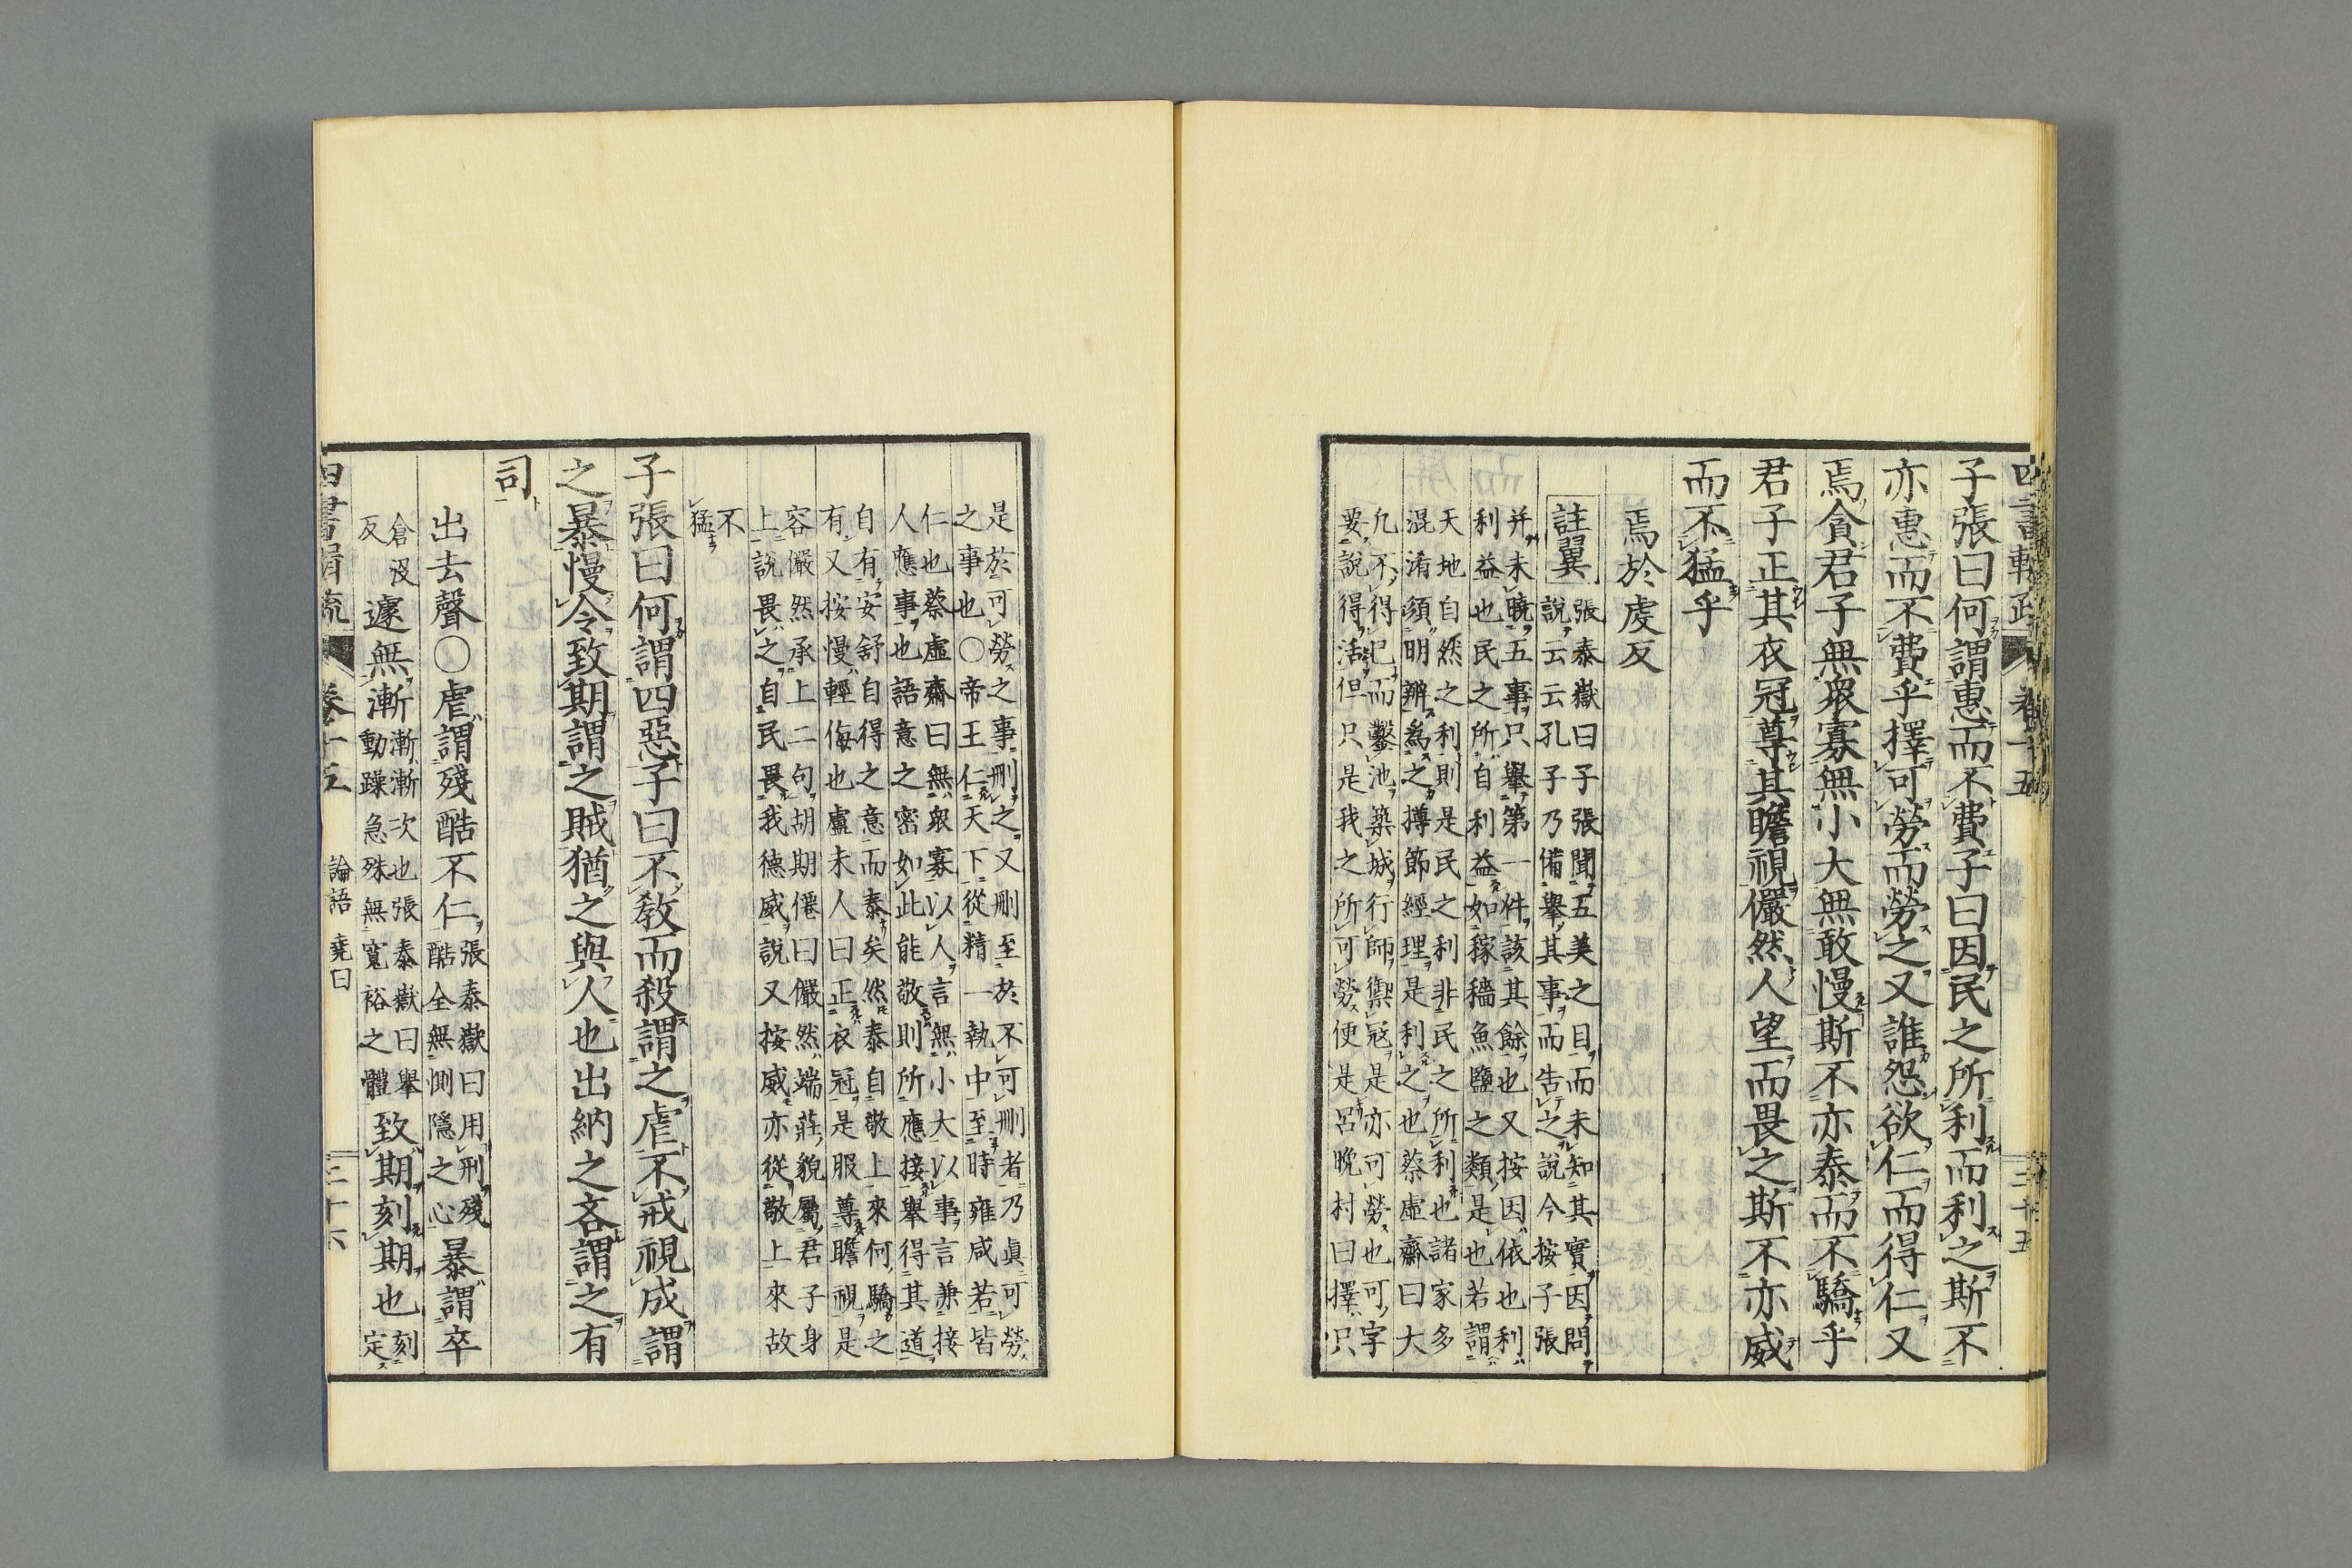 子張曰何謂惠而不費子曰因民之所利而利之斯不
亦惠而不費乎擇可勞而勞之又誰怨欲仁而得仁又
焉貪君子無衆寡無小大無敢慢斯不亦泰而不驕乎
君子正其衣冠尊其瞻視儼然人望而畏之斯不亦威
而不猛乎
焉於虔反
註翼
張泰嶽曰子張聞五美之目而未知其實因問
說云云孔子乃備擧其事而告之說今按子張
并未曉五事只擧第一件該其餘也又按因依也利
利益也民之所自利益如稼穡魚鹽之類是也若謂
天地自然之利則是民之利非民之所利也諸家多
混淆須明辨爲之撙節經理是利之也蔡虛齋曰大
凡不得已而鑿池築城行師禦寇是亦可勞也可字
要說得活但只是我之所可勞便是呂晚村曰擇只
是於可勞之事刪之又刪至於不可刪者乃眞可勞
之事也○帝王仁天下從精一執中至時雍咸若皆
仁也蔡虛齋曰無衆寡以人言無小大以事言兼接
人應事也語意之密如此能敬則所應接擧得其道
自有安舒自得之意而泰矣然泰自敬上來何驕之
有又按慢輕侮也盧未人曰正衣冠是服尊瞻視是
容儼然承上二句胡期僊曰儼然端莊貌屬君子身
上說畏之自民畏我德威說又按威亦從敬上來故
不
猛
子張曰何謂四惡子曰不敎而殺謂之虐不戒視成謂
之暴慢令致期謂之賊猶之與人也出納之吝謂之有
司
出去聲○虐謂殘酷不仁
張泰嶽曰用刑殘
酷全無惻隱之心
暴謂卒
倉沒
反
遽無漸
漸漸次也張泰嶽曰擧
動躁急殊無寬裕之體
致期刻期也
刻
定
論語 堯曰